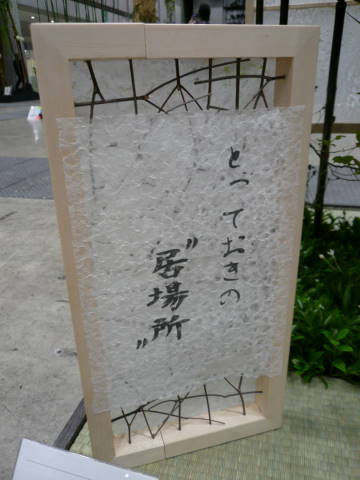 とっておきの
〝居場所〟